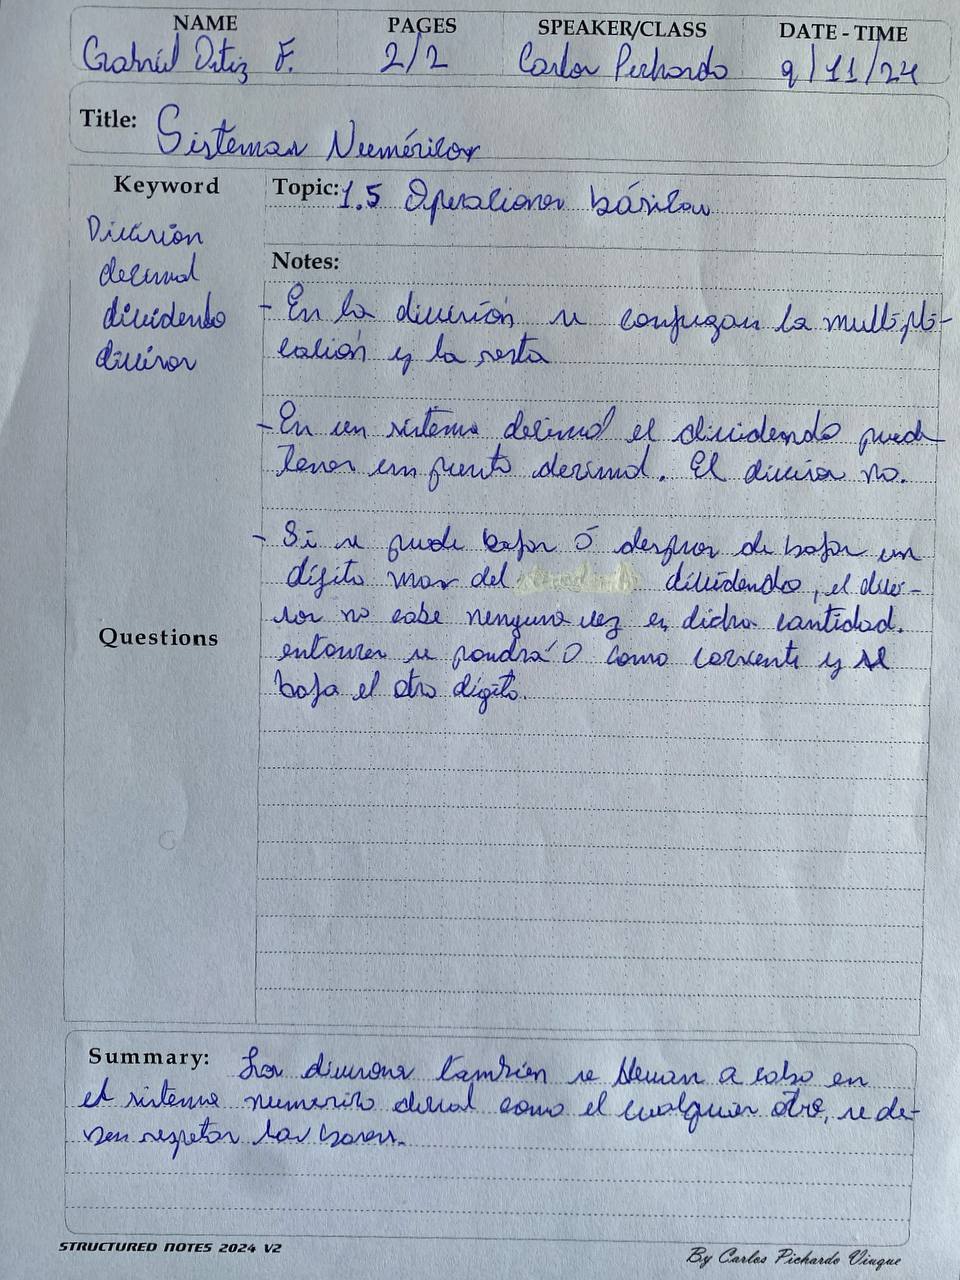 NAME PAGES SPEAKER/CLASS DATE - TIME
Gabriel Ortiz F. 2/2 Carlos Pichardo 9/11/24
Title: Sistemas Numéricos
Keyword
División
decimal
dividendo
divisor
Topic: 1.5 Operaciones básicas
Notes:
- En la división se conjugan la multipli-
cación y la resta
- En un sistema decimal el dividendo puede
tener un punto decimal. El divisor no.
- Si se puede bajar ó despues de bajar un
dígito mas del dividendo, el divi-
sor no cabe ninguna vez en dicha cantidad.
entonces se pondrá 0 como cociente y se
baja el otro dígito.
Questions
Summary: Las divisiones también se llevan a cabo en
el sistema numerico como el cualquier otro, se de-
ben respetar las bases.
STRUCTURED NOTES 2024 V2
By Carlos Pichardo Viuque